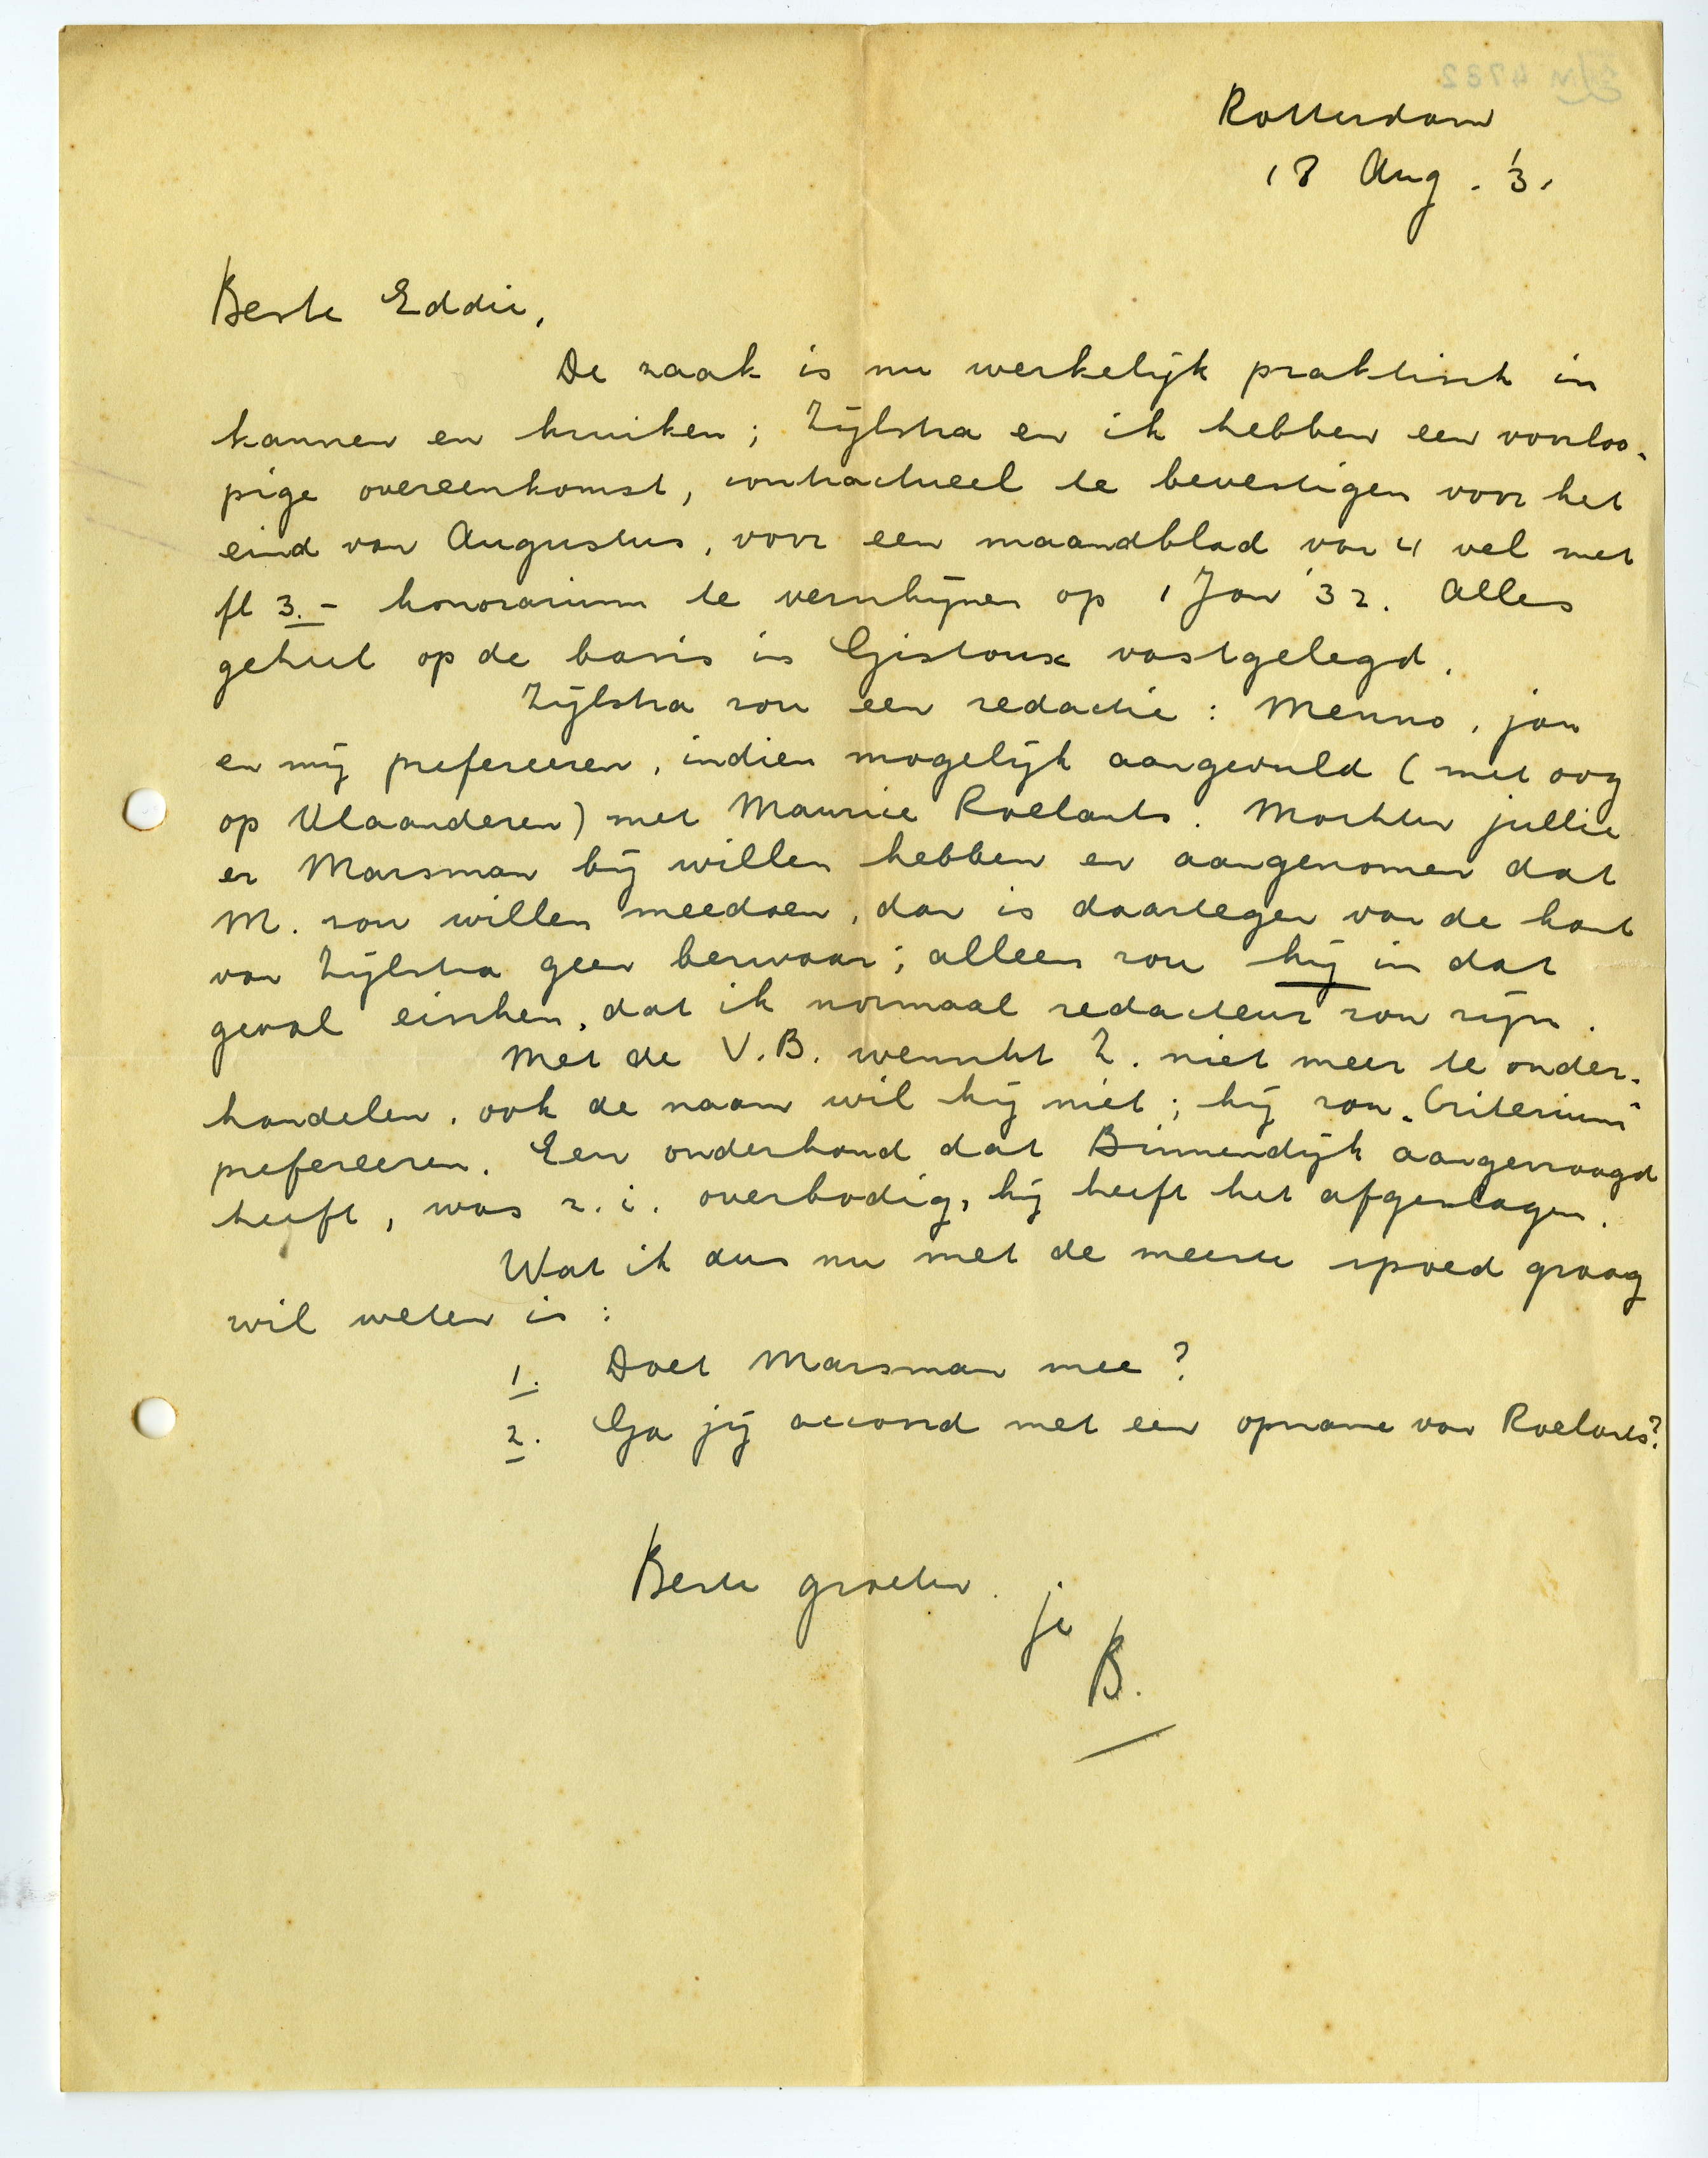 Rotterdam
18 Aug. '31
Beste Eddie,
De zaak is nu werkelijk praktisch in
kannen en kruiken; Zijlstra en ik hebben een voorloo-
pige overeenkomst, contractueel te bevestigen voor het
eind van Augustus, voor een maandblad van 4 vel met
fl 3.- honorarium te verschijnen op 1 Jan '32. Alles
geheel op de basis in Gistoux vastgelegd.
Zijlstra zou een redactie: Menno, jou
en mij prefereeren, indien mogelijk aangevuld (met oog
op Vlaanderen) met Maurice Roelants. Mochten jullie
er Marsman bij willen hebben en aangenomen dat
M. zou willen meedoen, dan is daartegen van de kant
van Zijlstra geen bezwaar; alleen zou hij in dat
geval eischen, dat ik normaal redacteur zou zijn.
Met de V.B. wenscht Z. niet meer te onder-
handelen, ook de naam wil hij niet; hij zou „Criterium"
prefereeren. Een onderhoud dat Binnendijk aangevraagd
heeft, was z.i. overbodig, hij heeft het afgeslagen.
Wat ik dus nu met de meeste spoed graag
wil weten is:
1. Doet Marsman mee?
2. Ga jij accoord met een opname van Roelants?
Beste groeten. je
B.